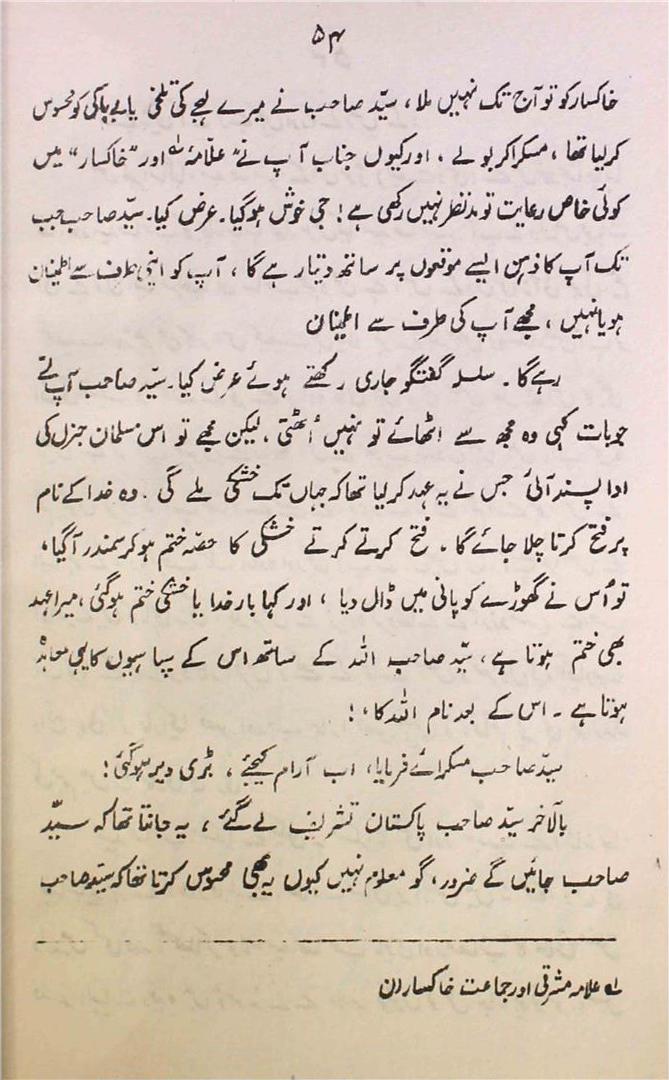 ۵۴
خاکسار کو تو آج تک نہیں ملا، سیّد صاحب نے میرے لہجے کی تلخی یا بے باکی کو محسوس
کر لیا تھا، مسکرا کر بولے، اور کیوں جناب آپ نے "علّامہ" لہ اور "خاکسار" میں
کوئی خاص رعایت تو مدنظر نہیں رکھی ہے! جی خوش ہوگیا۔ عرض کیا۔ سیّد صاحب جب
تک آپ کا ذہن ایسے موقعوں پر ساتھ دیتا رہے گا، آپ کو اپنی طرف سے اطمینان
ہو یا نہیں، مجھے آپ کی طرف سے اطمینان
رہے گا۔ سلسلہ گفتگو جاری رکھتے ہوئے عرض کیا۔ سیّد صاحب آپ نے
جو بات کہی وہ مجھ سے اٹھائے تو نہیں اُٹھتی، لیکن مجھے تو اس مسلمان جنرل کی
ادا پسند آئی جس نے یہ عہد کر لیا تھا کہ جہاں تک خشکی ملے گی۔ وہ خدا کے نام
پر فتح کرتا چلا جائے گا۔ فتح کرتے کرتے خشکی کا حصہ ختم ہو کر سمندر آگیا،
تو اُس نے گھوڑے کو پانی میں ڈال دیا، اور کہا بار خدایا خشکی ختم ہوگئی، میرا عہد
بھی ختم ہوتا ہے، سیّد صاحب اللہ کے ساتھ اس کے سپاہیوں کا یہی معاہدہ
ہوتا ہے۔ اس کے بعد نام اللہ کا،!
سیّد صاحب مسکرائے فرمایا، اب آرام کیجئے، بڑی دیر ہوگئی!
بالآخر سیّد صاحب پاکستان تشریف لے گئے، یہ جانتا تھا کہ سیّد
صاحب جائیں گے ضرور، گو معلوم نہیں کیوں یہ بھی محسوس کرتا تھا کہ سیّد صاحب
لہ علامہ مشرقی اور جماعت خاکساران